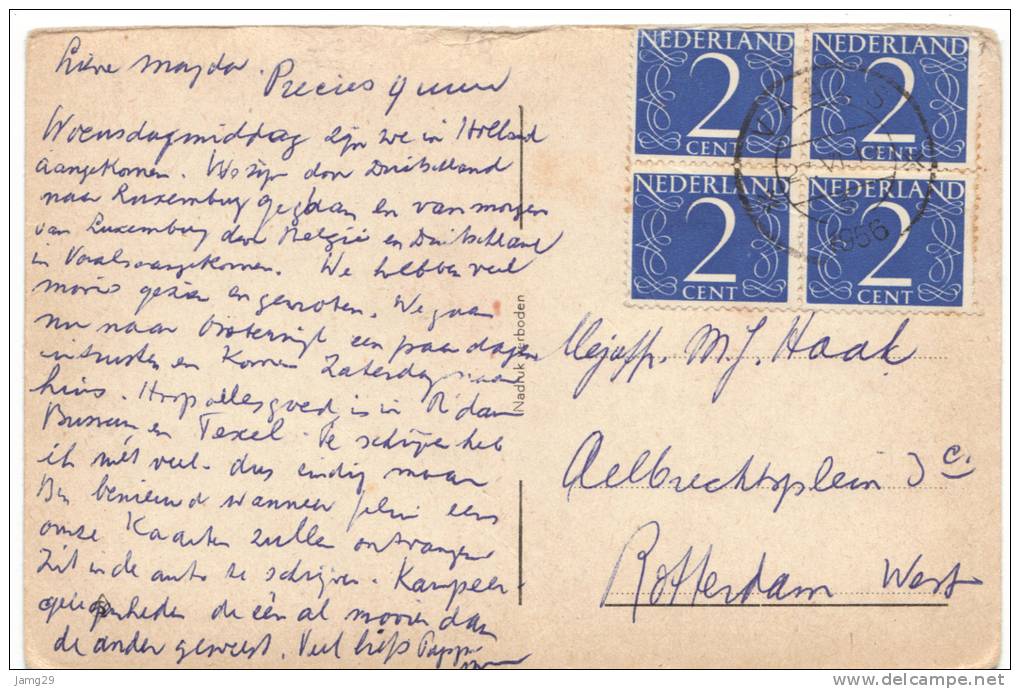 Lieve Magda.
Precies 4 uur
Woensdagmiddag zijn we in Holland
aangekomen. We zijn door Duitschland
naar Luxemburg gegaan en van morgen
van Luxemburg door België en Duitschland
in Vaals aangekomen. We hebben veel
moois gezien en genoten. We gaan
nu naar een paar dagen
uitrusten en komen Zaterdag naar
huis. Hoop alles goed is in R'dam
Bussum en Texel. Te schrijven heb
ik niet veel. dus eindig maar
Ben benieuwd wanneer jullie eens
onze kaarten zullen ontvangen
Zit in de auto te schrijven. Kampeer-
gelegenheden de één al mooier dan
de ander geweest. Veel liefs Pappa
Nadruk verboden
NEDERLAND
2
CENT
NEDERLAND
2
CENT
NEDERLAND
2
CENT
NEDERLAND
2
CENT
VAALS
1956
Mejuffr. M.J. Haak
Aelbrechtsplein 3 c.
Rotterdam West
Jamg29
www.delcampe.net